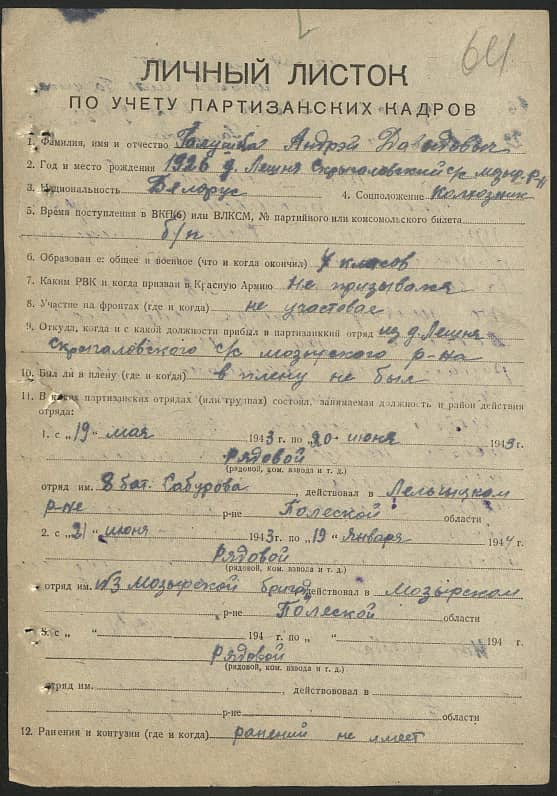 641
ЛИЧНЫЙ ЛИСТОК
ПО УЧЕТУ ПАРТИЗАНСКИХ КАДРОВ
1. Фамилия, имя и отчество Галушка Андрэй Давыдович
2. Год и место рождения 1926 д. Лешня Скрыгаловский с/с мозыр. р-н
3. Национальность Белорус 4. Соцположение Колхозник
5. Время поступления в ВКП(б) или ВЛКСМ, № партийного или комсомольского билета
б/п
6. Образован е: общее и военное (что и когда окончил) 4 класов
7. Каким РВК и когда призван в Красную Армию не призывался
8. Участие на фронтах (где и когда) не участовав
9. Откуда, когда и с какой должности прибыл в партизанкий отряд из д. Лешня
скрыгалёвского с/с мозырского р-на
10. Был ли в плену (где и когда) в плену не был
11. В каких партизанских отрядах (или группах) состоял, занимаемая должность и район действия
отряда:
1. с „19" мая 1943 г. по „20 июня 1943 г.
Рядовой
(рядовой, ком. взвода и т. д.)
отряд им. 8 бат. Сабурова, действовал в Лельчицком
р-не р-не Полеской области
2. с „21" июня 1943 г. по „19" января 1944 г.
Рядовой
(рядовой, ком. взвода и т. д.)
отряд им. №3 Мозырской бригад действовал в мозырском
р-не Полеской области
3. с „ " 194 г. по „ " 194 г.
Рядовой
(рядовой, ком. взвода и т. д.)
отряд им. , действововал в
р-не области
12. Ранения и контузии (где и когда) ранений не имеет